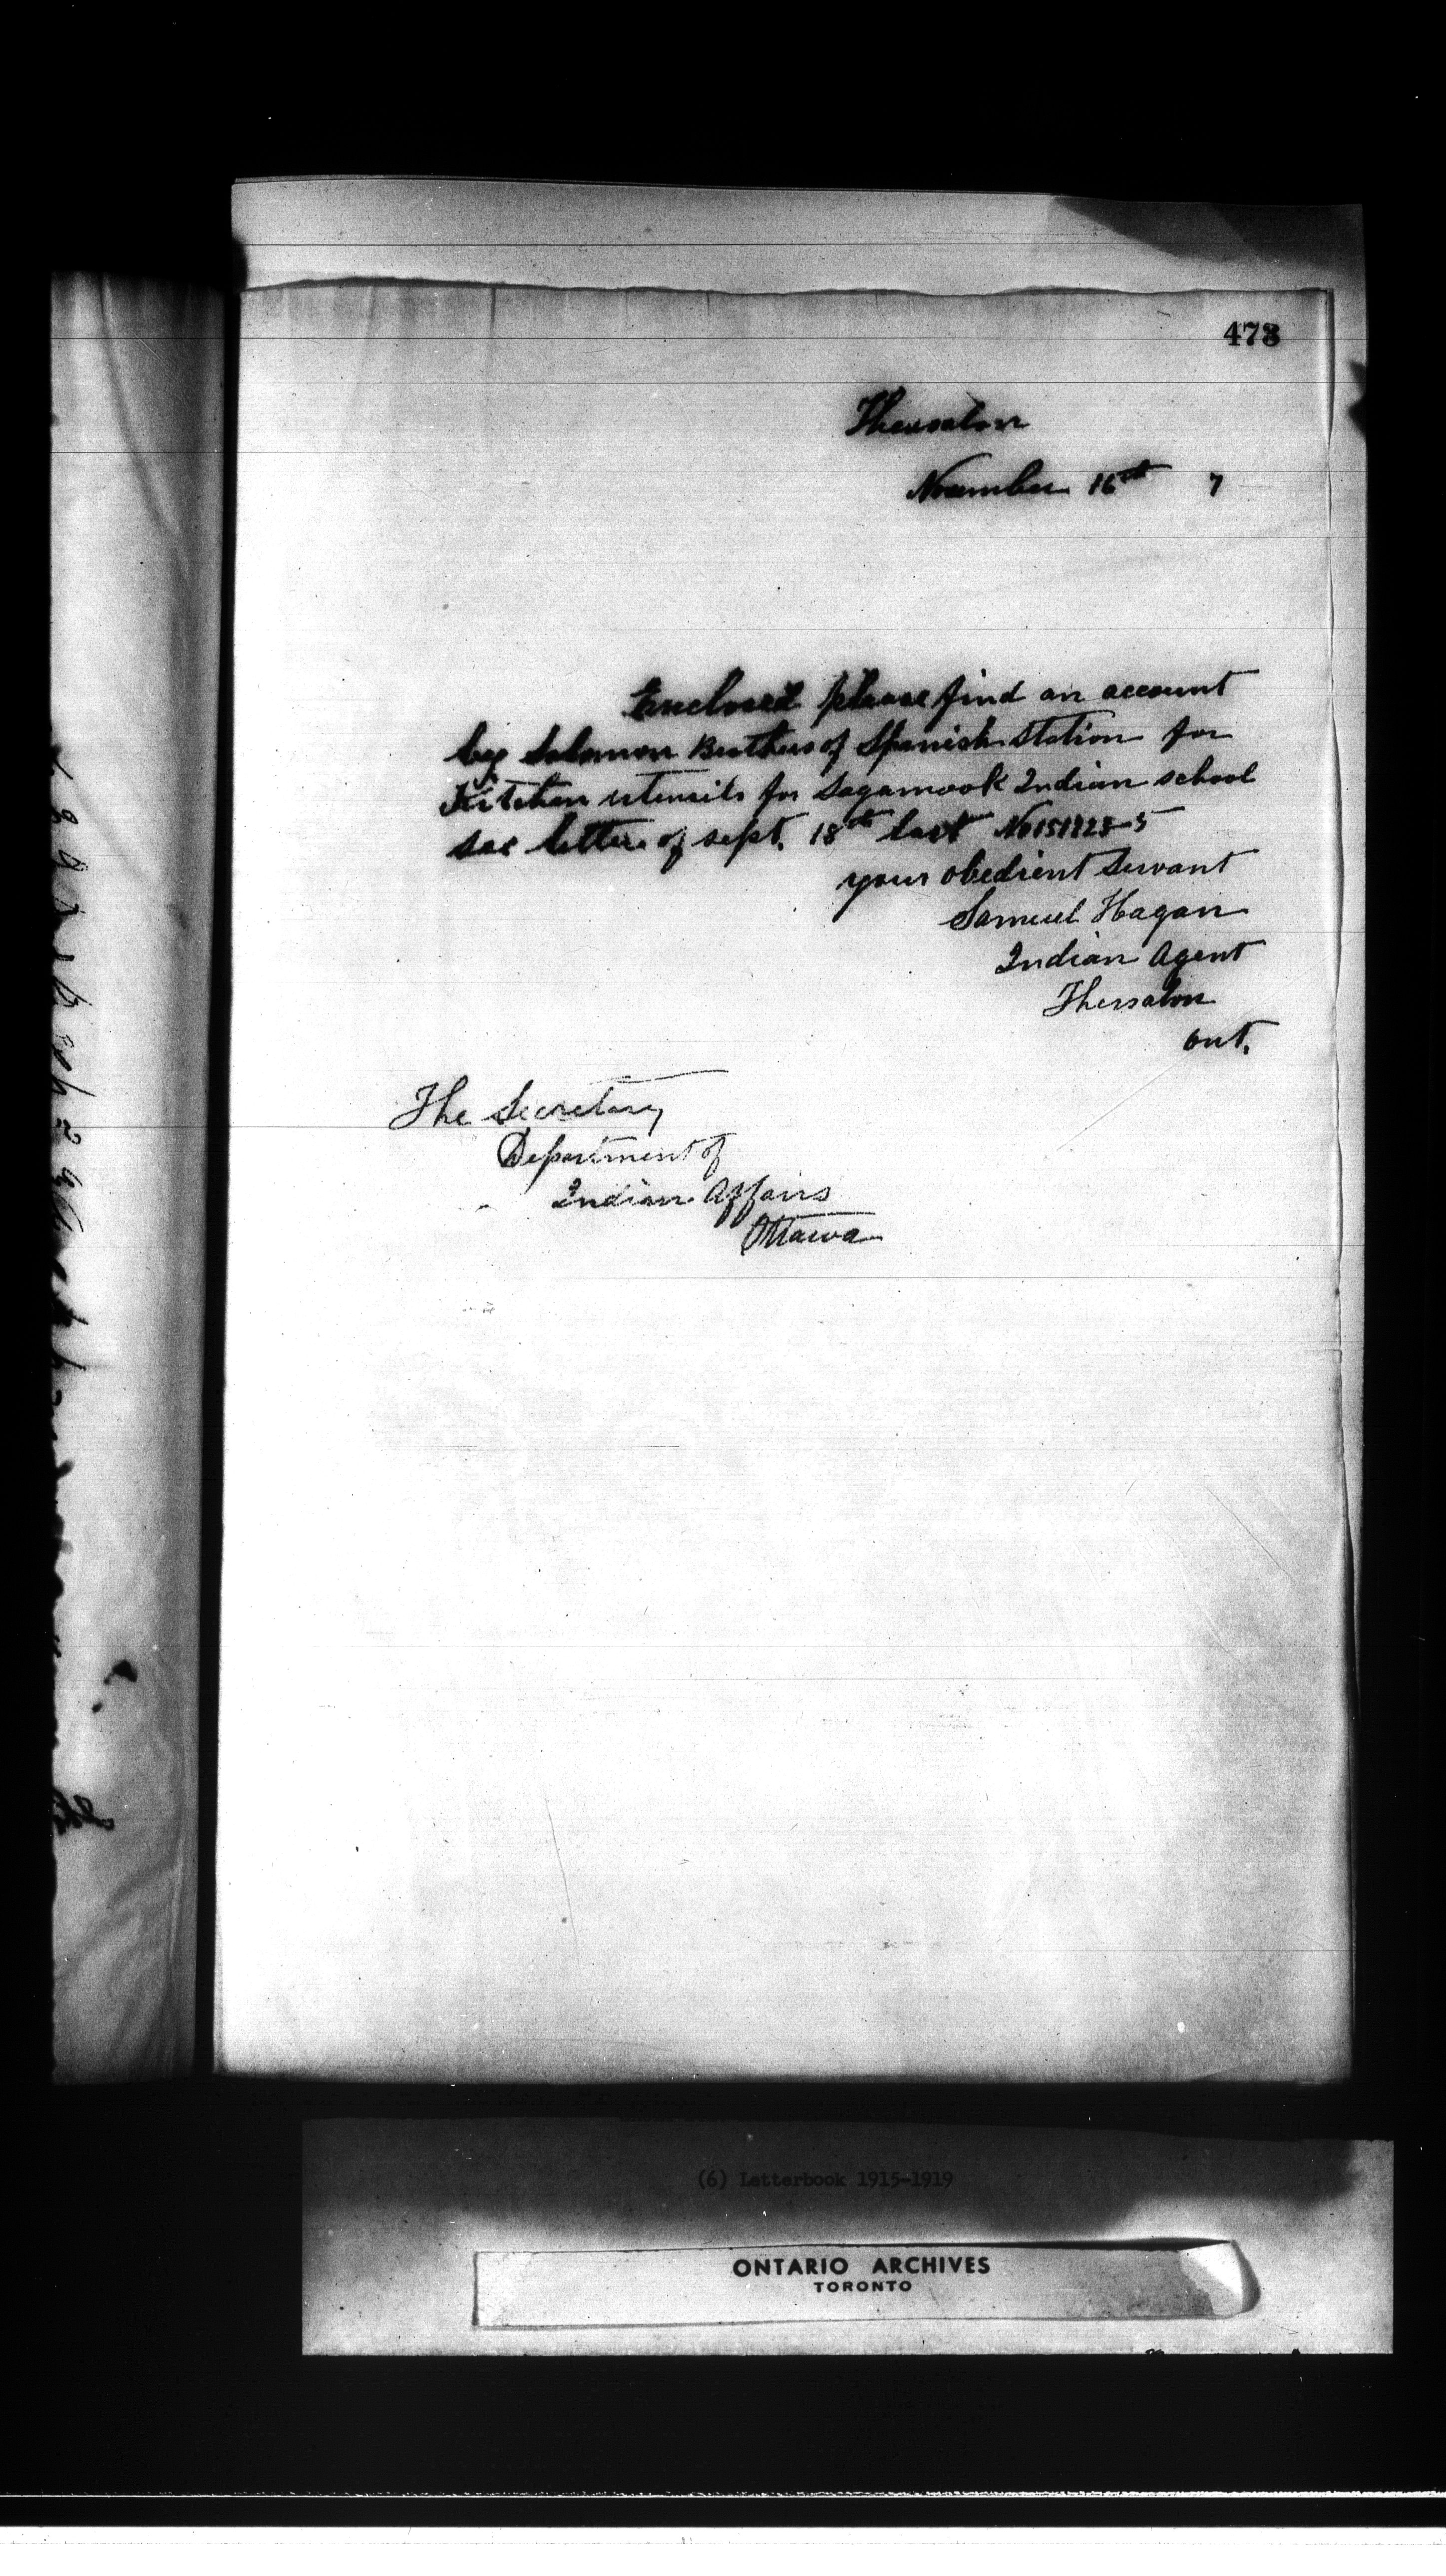 473
Thessalon
November 16th 7
Enclosed please find an account
by Solomon Brothers of Spanish Station for
Kitchen utensils for Sagamook Indian school
see letter of sept. 18th last No 151928-5
your obedient Servant
Samuel Hagan
Indian Agent
Thessalon
Ont.
The Secretary
Department of
Indian Affairs
Ottawa
(6) Letterbook 1915-1919
ONTARIO ARCHIVES
TORONTO